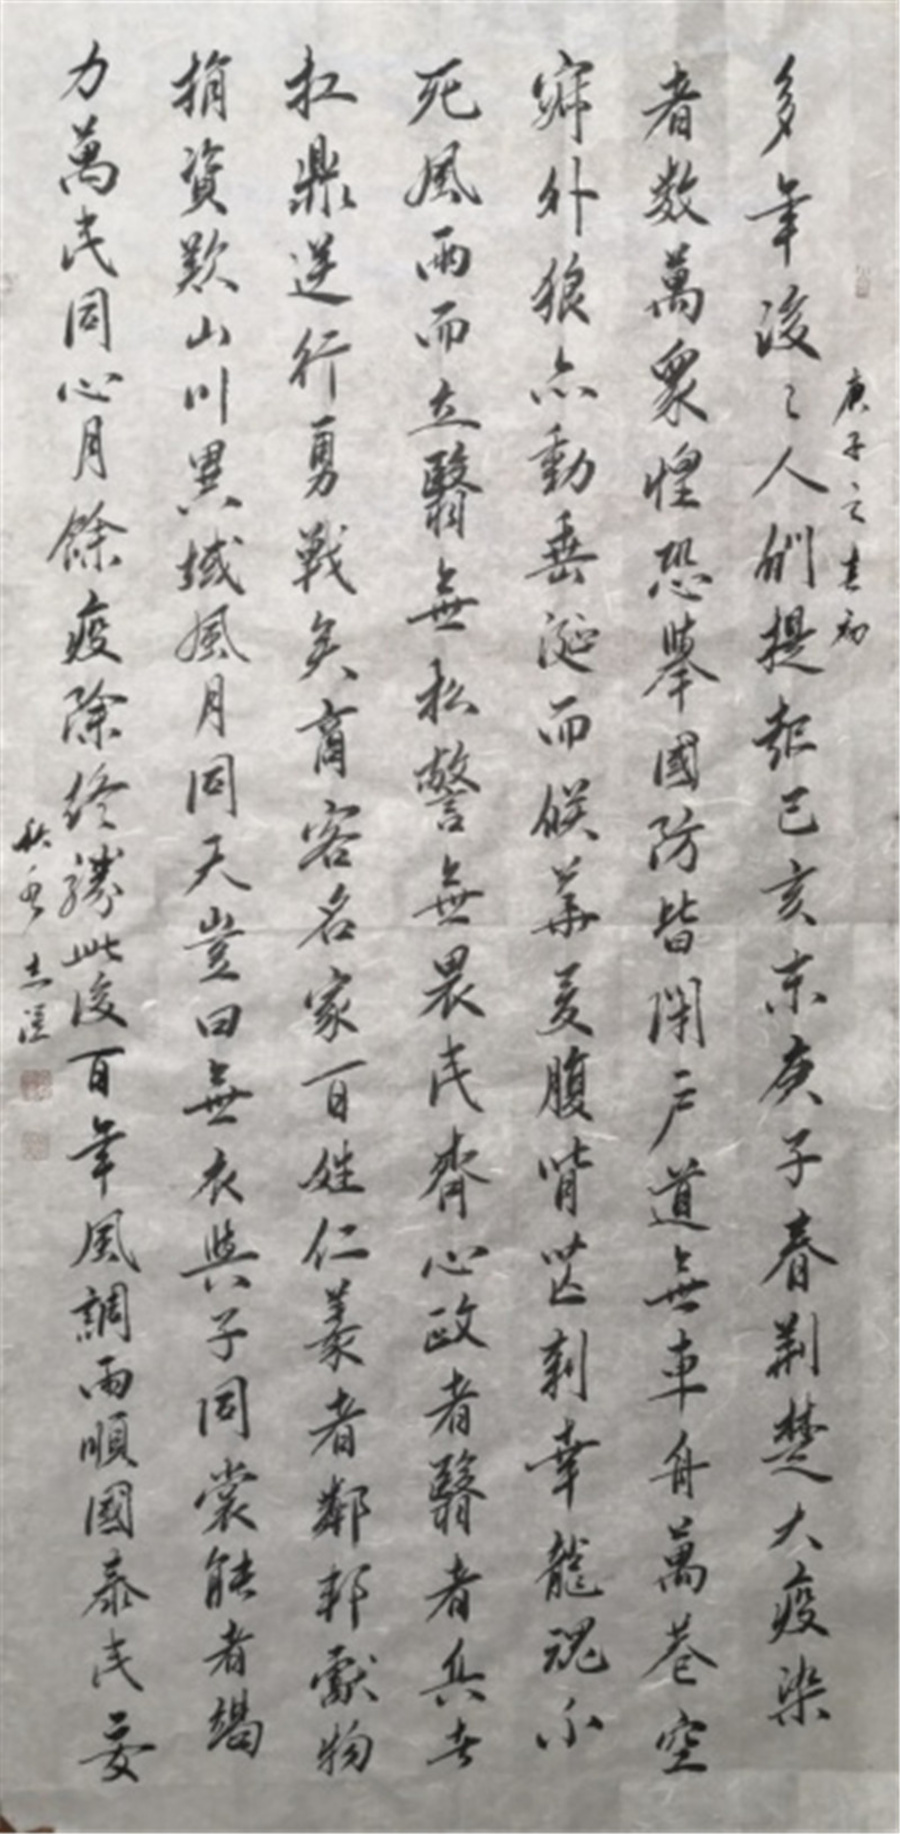 庚子之春初
多年後々人們提起己亥末庚子春荆楚大疫染
者数萬衆惶恐舉國防皆閉户道無車舟萬巷空
寐外狼亦動垂涎而候華夏腹背芒刺幸龍魂不
死風雨而立醫無私警無畏民齊心政者醫者兵者
扛鼎逆行勇戰矣商客名家百姓仁義者鄰邦獻物
捐資歎山川異域風月同天豈曰無衣與子同裳能者竭
力萬民同心月餘疫除終勝此後百年風調雨順國泰民安